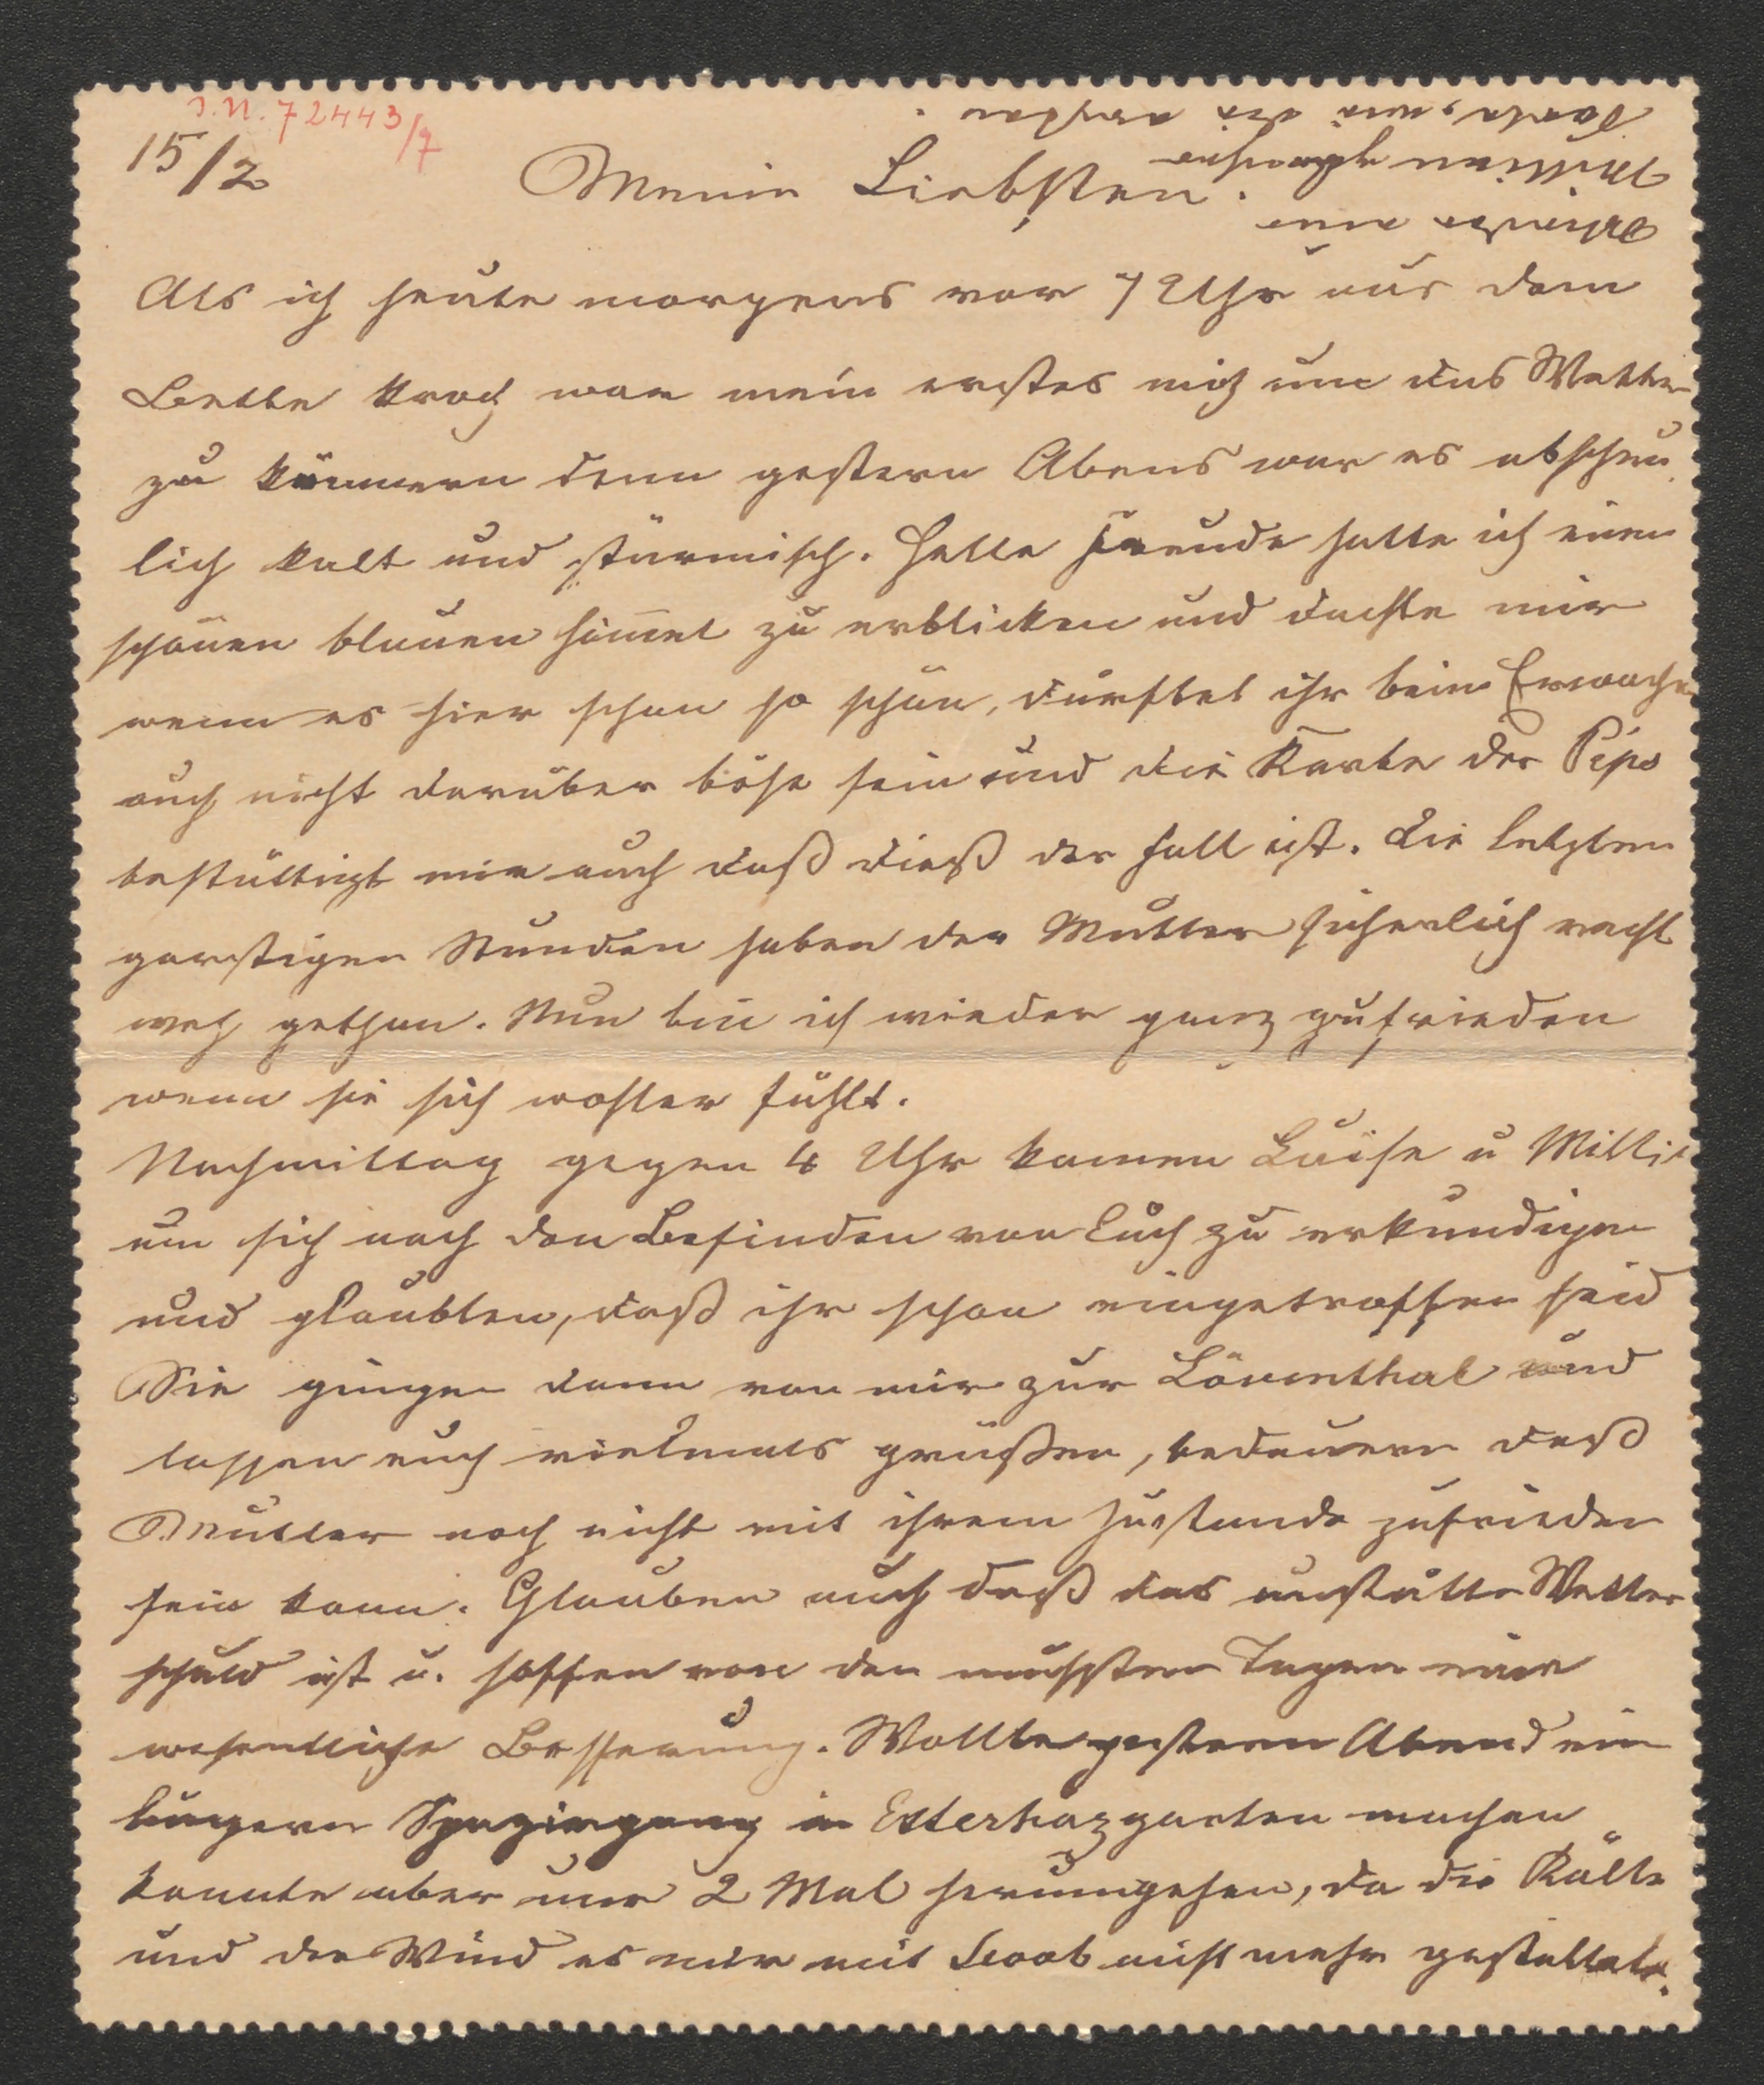 J.N. 72443/7
15/2
Meine Liebsten.
Als ich heute morgens vor 7 Uhr aus dem
Bette kroch war mein erstes mich um das Wetter
zu kümmern denn gestern Abend war es abscheu
lich kalt und stürmisch. Helle Freude hatte ich einen
schönen blauen Himel zu erblicken und dachte mir
wenn es hier schon so schön, durftet ihr beim Erwachen
auch nicht darüber böse sein und die Karte der Pipo
bestättigt mir auch daß dieß der Fall ist. Die letzten
garstigen Stunden haben der Mutter sicherlich recht
weh gethan. Nun bin ich wieder ganz zufrieden
wenn sie sich wohler fühlt.
Nachmittag gegen 4 Uhr kamen Luise u Millie
um sich nach den Befinden von Euch zu erkundigen
und glaubten, daß ihr schon eingetroffen seid
Sie gingen dann von mir zur Löwenthal und
lassen euch vielmals grüßen, bedauern daß
Mutter noch nicht mit ihrem Zustande zufrieden
sein kann. Glauben auch daß das unstätte Wetter
schuld ist u. hoffen von den nächsten Tagen eine
wesentliche Besserung. Wollte gestern Abend ein
längern Spaziergang in Esterhazgarten machen
konnte aber nur 2 Mal herumgehen, da die Kälte
und der Wind es mir mit Lord nicht mehr gestattete.
Torte, wie die ersten.